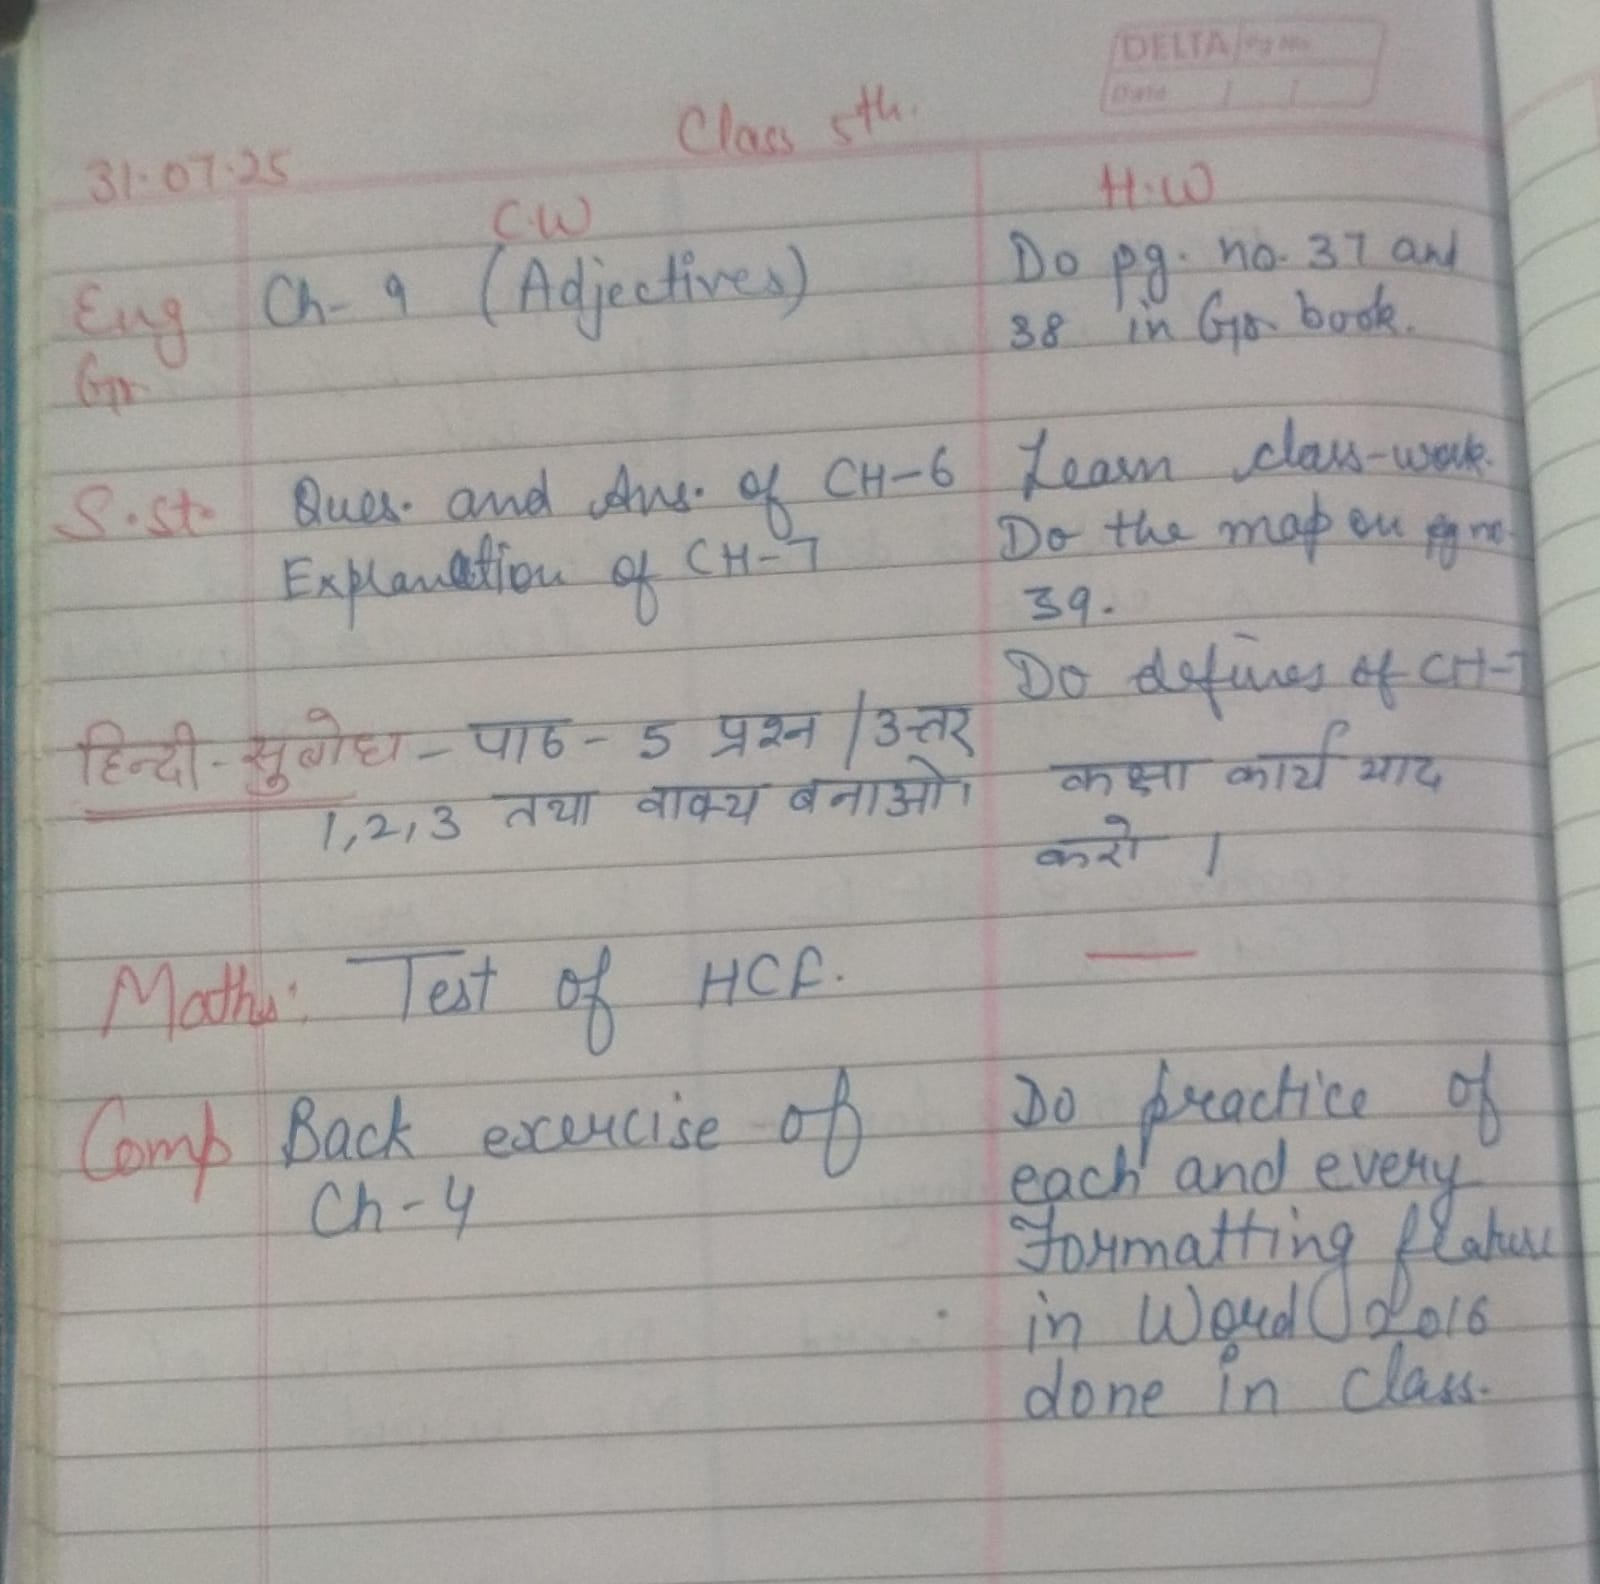 DELTA Pg No.
Date / /
Class 5th.
31.07.25
C.W
H.W
Eng Ch- 9 (Adjectives)
Gr.
Do pg. no. 37 and
38 in Gr. book.
S.st. Ques. and Ans. of CH-6
Explanation of CH-7
Learn class-work.
Do the map on pg no.
39.
Do defines of CH-7
हिन्दी - सुबोध - पाठ - 5 प्रश्न / उत्तर
1,2,3 तथा वाक्य बनाओ।
कक्षा कार्य याद
करो ।
Maths: Test of HCF.
—
Comp Back exercise of
Ch-4
Do practice of
each and every
formatting feature
in Word 2016
done in class.